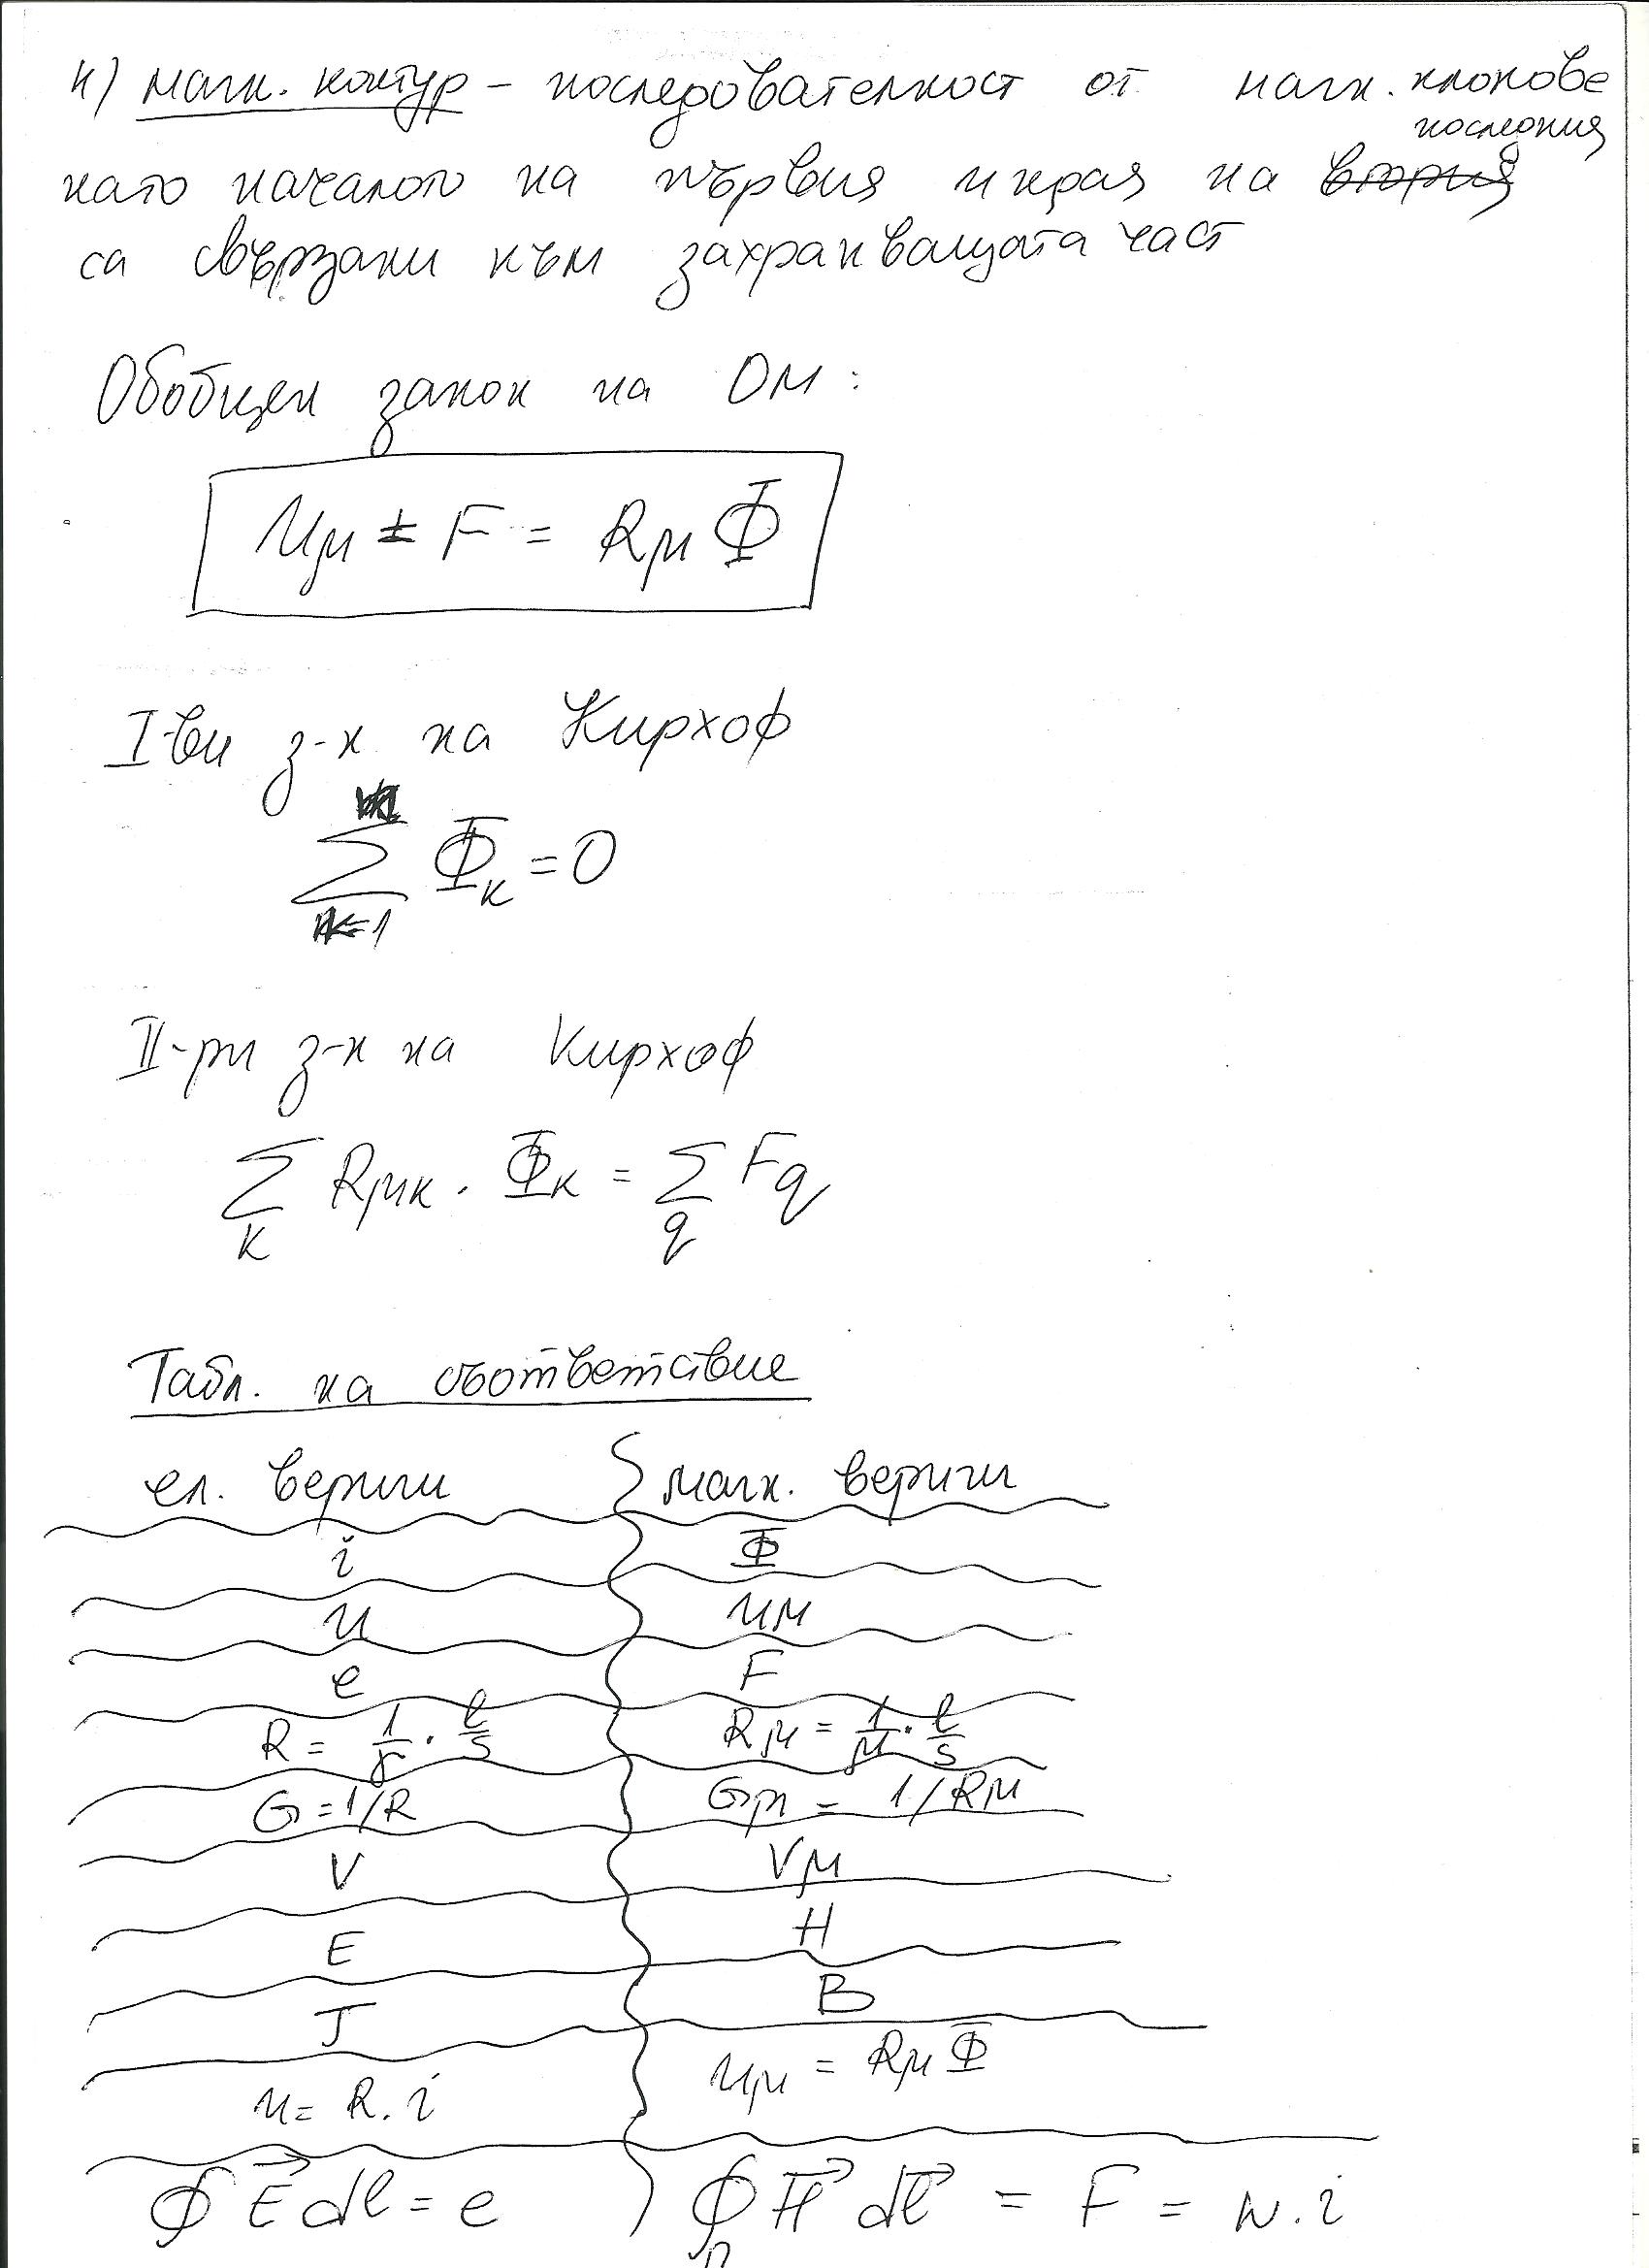 4) магн. контур – последователност от магн. клонове
последния
като началото на първия и края на втория
са свързани към захранващата част
Обобщен закон на Ом:
Uμ ± F = Rμ Φ
I-ви з-н на Кирхоф
∑ Φк = 0
к=1
II-ри з-н на Кирхоф
∑ Rμк . Φк = ∑ Fq
к q
Табл. на съответствие
ел. вериги магн. вериги
i Φ
u uμ
e F
R = 1/γ . l/s Rμ = 1/μ . l/s
G = 1/R Gμ = 1/Rμ
V Vμ
E H
J B
u = R.i uμ = Rμ Φ
∮ E⃗ dl = e ∮ H⃗ dl⃗ = F = w.i